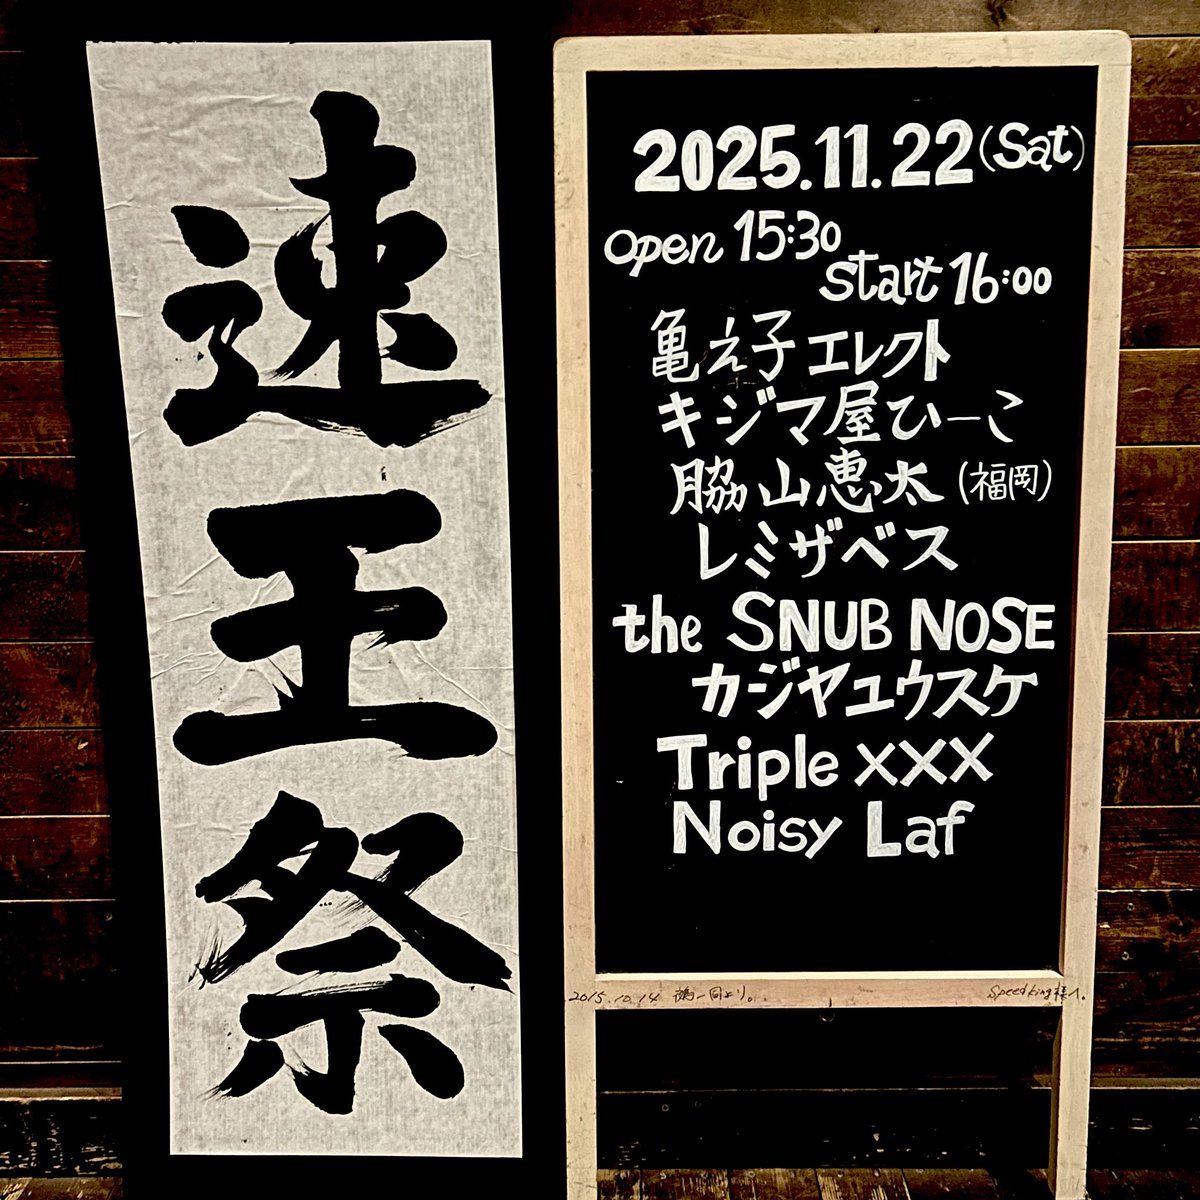 速王祭
2025.11.22(Sat)
open 15:30
start 16:00
亀え子エレクト
キジマ屋ひーこ
脇山恵太(福岡)
レミザベス
the SNUB NOSE
カジヤユウスケ
Triple XXX
Noisy Laf
2015.10.14 一同より。
Speed king様へ。